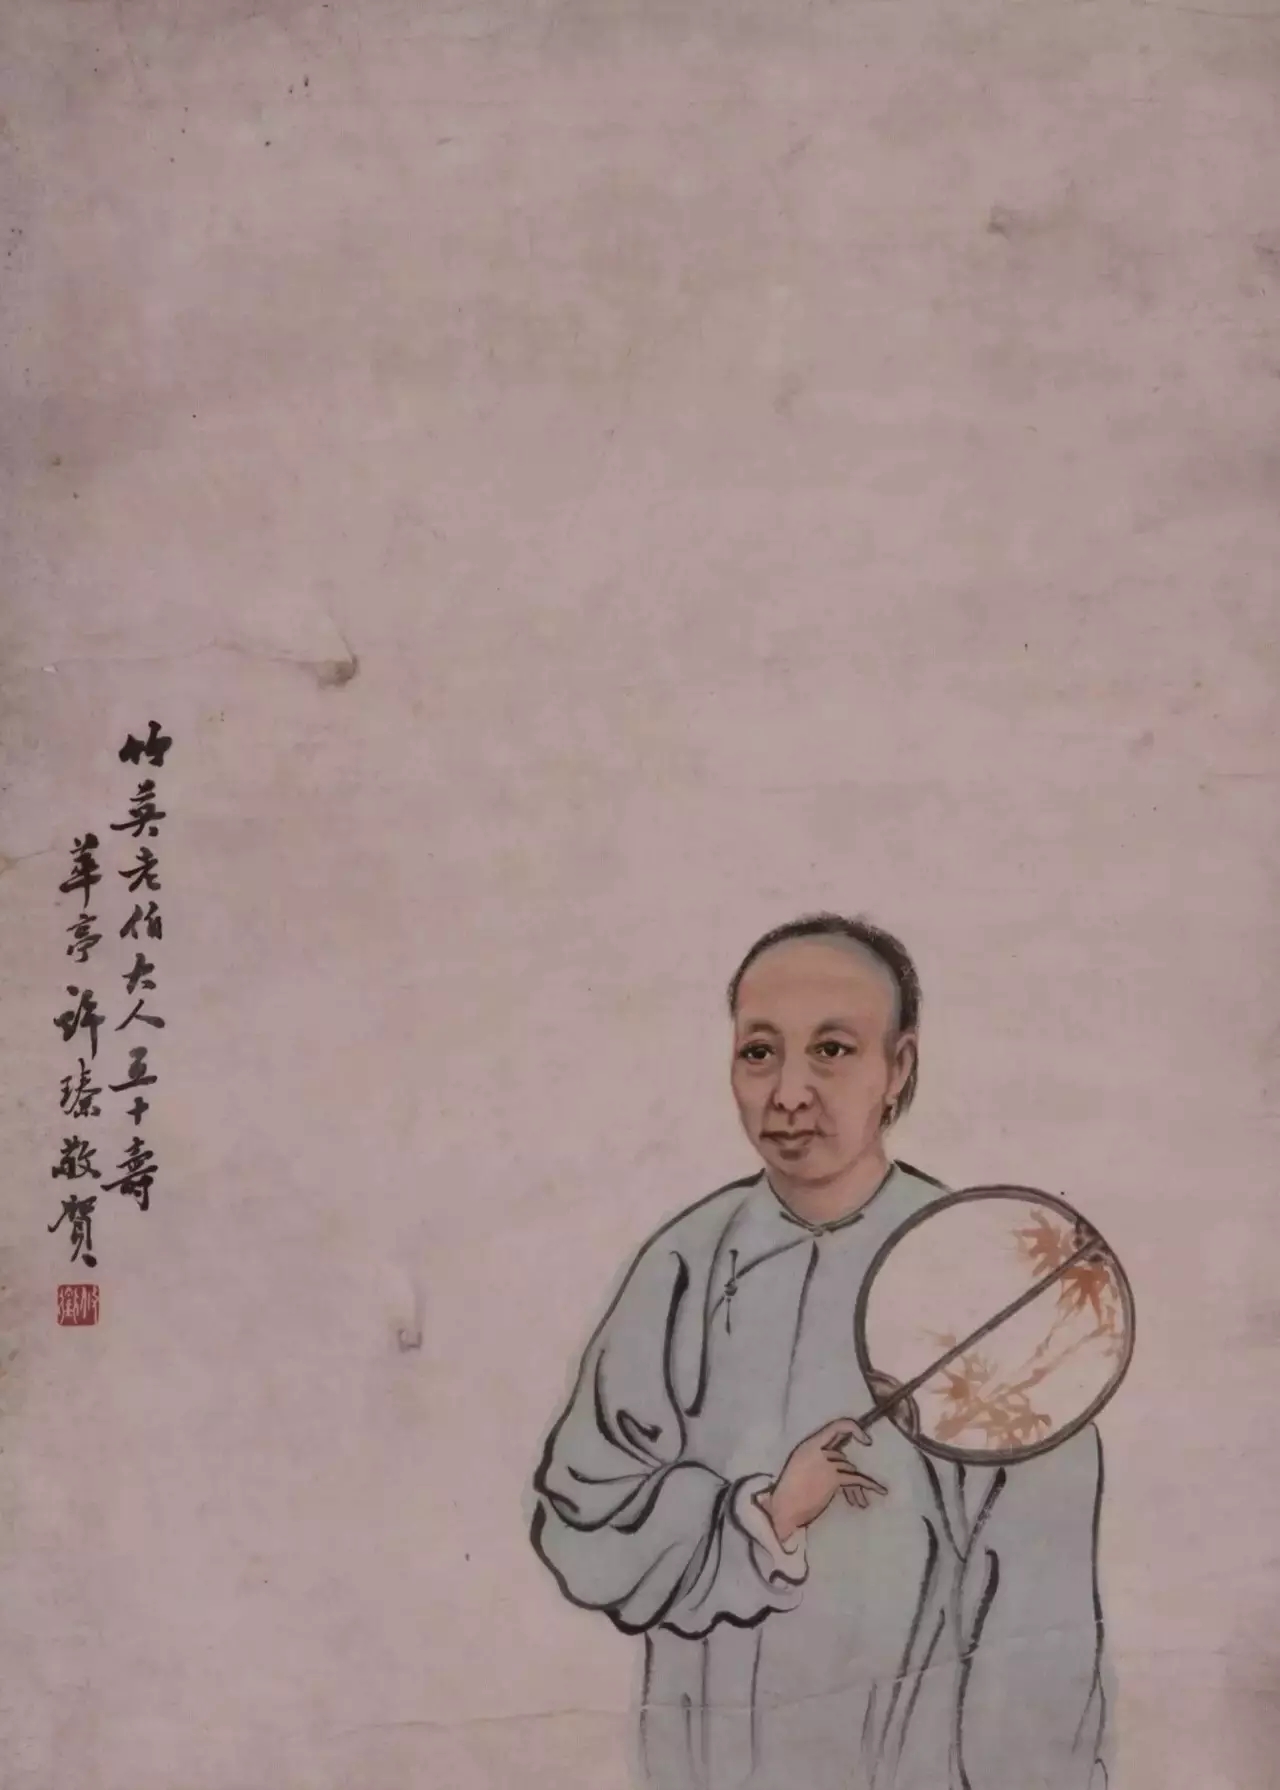 仲英老伯大人五十壽
華亭許瑧敬賀